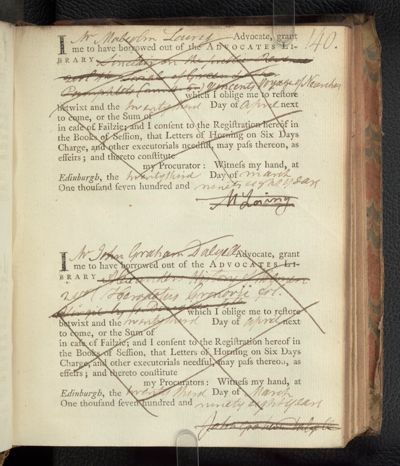 140.
I Mr Malcolm Laing Advocate, grant
me to have borrowed out of the ADVOCATES LI-
BRARY
Vincents Voyage of Nearchus
which I oblige me to restore
betwixt and the twenty third Day of April next
to come, or the Sum of
in case of Failzie; and I consent to the Registration hereof in
the Books of Session, that Letters of Horning on Six Days
Charge, and other executorials needful, may pass thereon, as
effeirs; and thereto constitute
my Procurator: Witness my hand, at
Edinburgh, the twenty third Day of March
One thousand seven hundred and ninety eight years
M Laing
I Mr John Graham Dalyell Advocate, grant
me to have borrowed out of the ADVOCATES LI-
BRARY
Herodotus Gronovii fol.
which I oblige me to restore
betwixt and the twenty third Day of April next
to come, or the Sum of
in case of Failzie; and I consent to the Registration hereof in
the Books of Session, that Letters of Horning on Six Days
Charge, and other executorials needful, may pass thereon, as
effeirs; and thereto constitute
my Procurators: Witness my hand, at
Edinburgh, the twenty third Day of March
One thousand seven hundred and ninety eight years
John Graham Dalyell